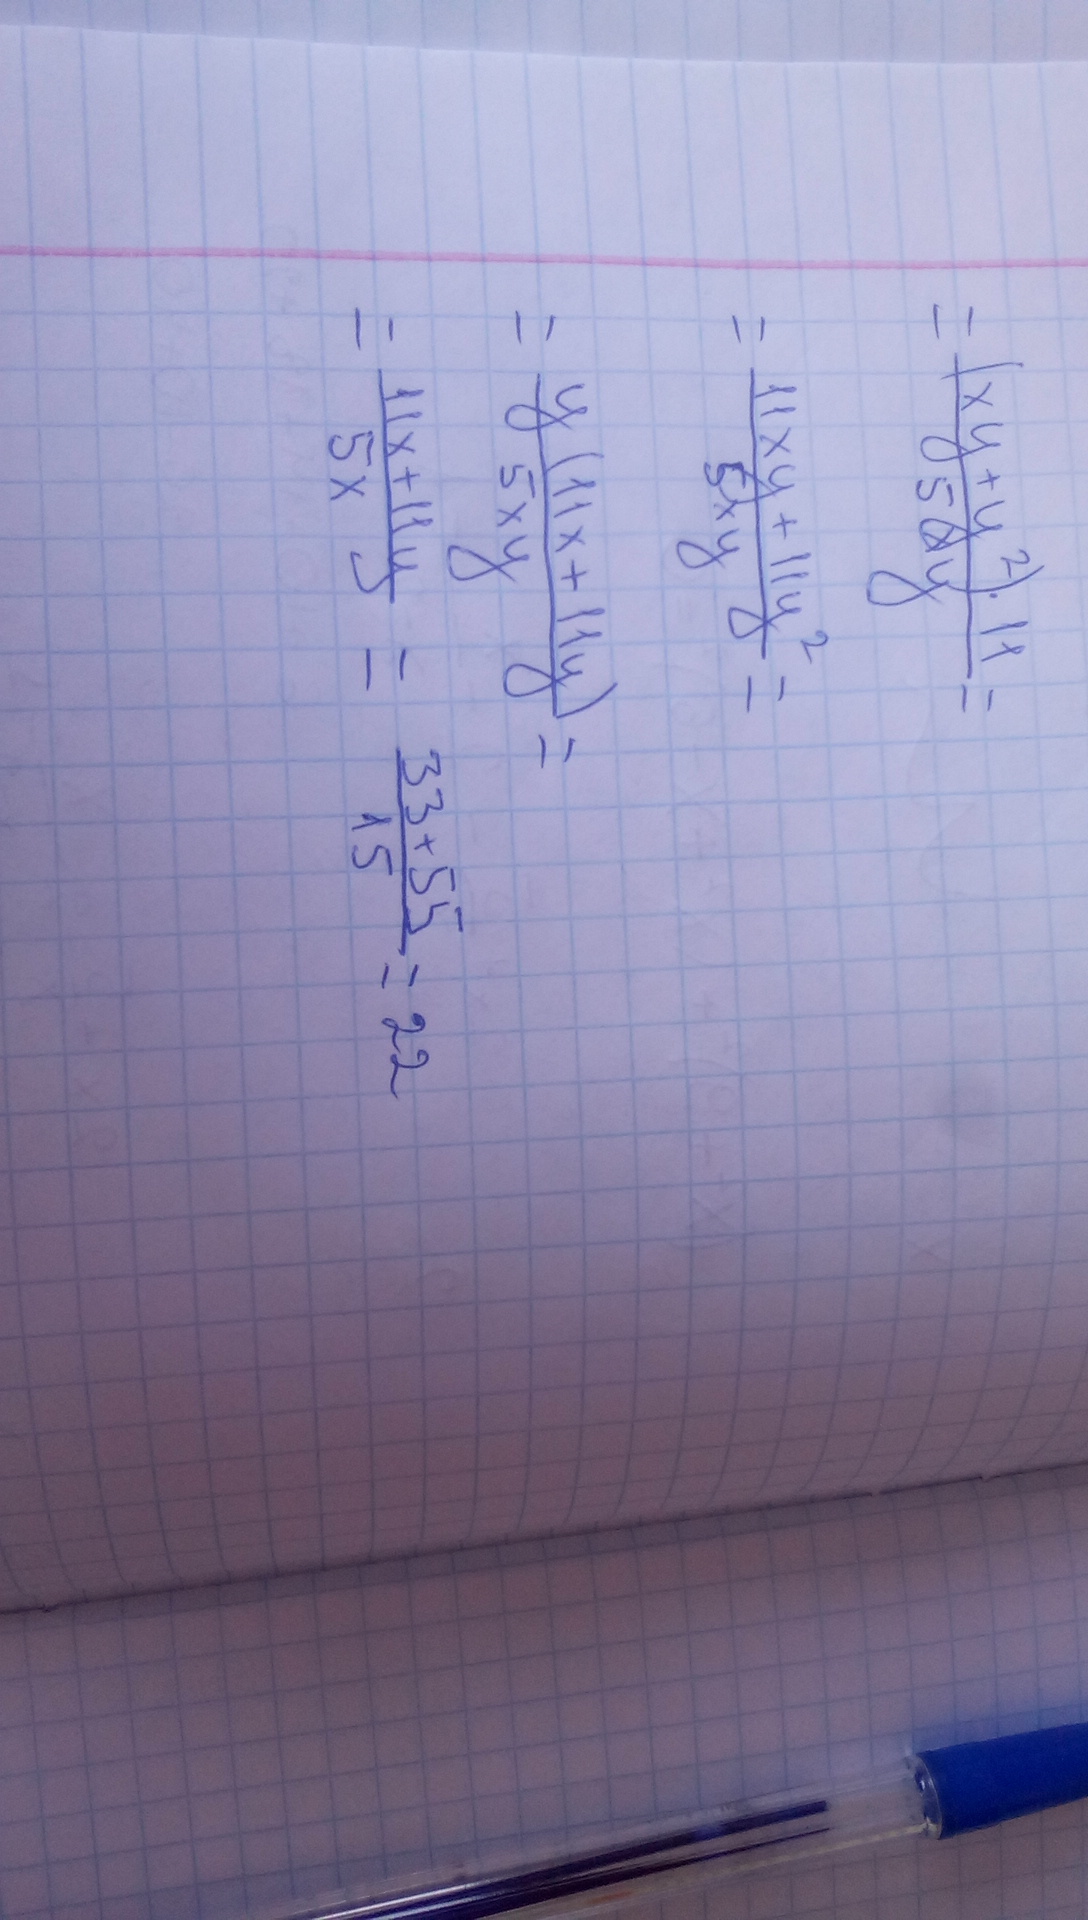 = (xy+y²)·11 / 5xy =
= 11xy+11y² / 5xy =
= y(11x+11y) / 5xy =
= 11x+11y / 5x = 33+55 / 15 = 22